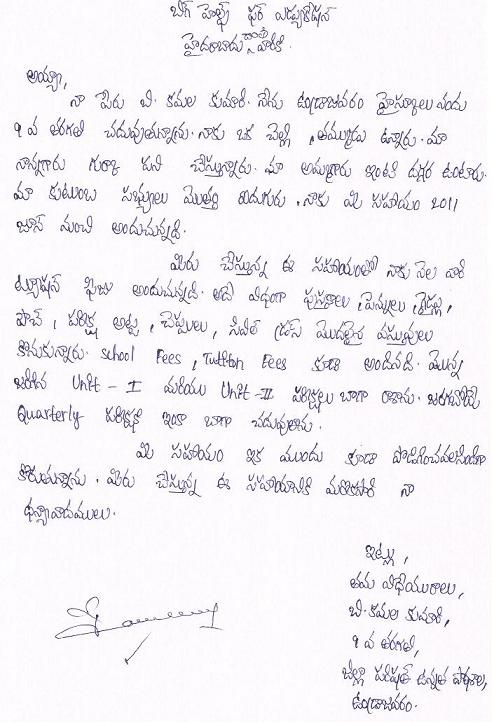 బిగ్ హెల్ప్ ఫర్ ఎడ్యుకేషన్
హైదరాబాదు వారికి.
అయ్యా,
నా పేరు బి. కమల కుమారి. నేను ఉండ్రాజవరం హైస్కూలు నందు
9 వ తరగతి చదువుతున్నాను. నాకు ఒక చెల్లి, తమ్ముడు ఉన్నారు. మా
నాన్నగారు గుర్ఖా పని చేస్తున్నారు. మా అమ్మగారు ఇంటి దగ్గర ఉంటారు.
మా కుటుంబ సభ్యులు మొత్తం ఐదుగురు. నాకు మీ సహాయం 2011
జూన్ నుంచి అందుచున్నది.
మీరు చేస్తున్న ఈ సహాయంతో నాకు నెల వారి
ట్యూషన్ ఫీజు అందుచున్నది. అదే విధంగా పుస్తకాలు, పెన్నులు,
పౌచ్, పరీక్ష అట్ట, చెప్పులు, సివిల్ డ్రస్ మొదలైన వస్తువులు
కొనుకున్నాను. school Fees, Tuttion Fees కూడా అందినది. మొన్న
జరిగిన Unit - I మరియు Unit - II పరీక్షలు బాగా రాశాను. జరగబోయే
Quarterly పరీక్షకి ఇంకా బాగా చదువుతాను.
మీ సహాయం ఇక ముందు కూడా పొడిగించవలసిందిగా
కోరుతున్నాను. మీరు చేస్తున్న ఈ సహాయానికి మరొకసారి నా
ధన్యవాదములు.
ఇట్లు,
తమ విధేయురాలు,
బి. కమల కుమారి,
9 వ తరగతి,
జిల్లా పరిషత్ ఉన్నత పాఠశాల,
ఉండ్రాజవరం.